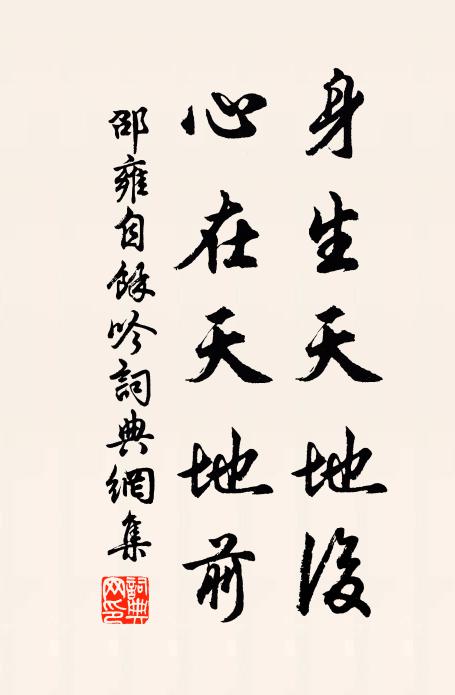 身生天地後
心在天地前
邵雍自餘吟詞典網集
詞典網印